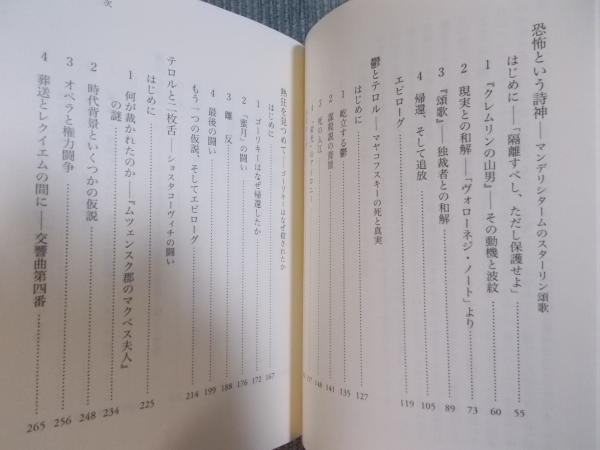 恐怖という詩神――マンデリシタームのスターリン頌歌
はじめに――「隔離すべし、ただし保護せよ」 55
1 『クレムリンの山男』――その動機と波紋 60
2 現実との和解――「ヴォローネジ・ノート」より 73
3 『頌歌』――独裁者との和解 89
4 帰還、そして追放 105
エピローグ 119
鬱とテロル――マヤコフスキーの死と真実
はじめに 127
1 屹立する鬱 135
2 謀殺説の背景 141
3 死の入江 148
熱狂を見つめて――ゴーリキーはなぜ殺されたか
はじめに 167
1 ゴーリキーはなぜ帰還したか 172
2 「蜜月」の闘い 176
3 離反 188
4 最後の闘い 199
もう一つの仮説、そしてエピローグ 214
テロルと二枚舌――ショスタコーヴィチの闘い
はじめに 225
1 何が裁かれたのか――『ムツェンスク郡のマクベス夫人』
の謎 234
2 時代背景といくつかの仮説 248
3 オペラと権力闘争 256
4 葬送とレクイエムの間に――交響曲第四番 265
次